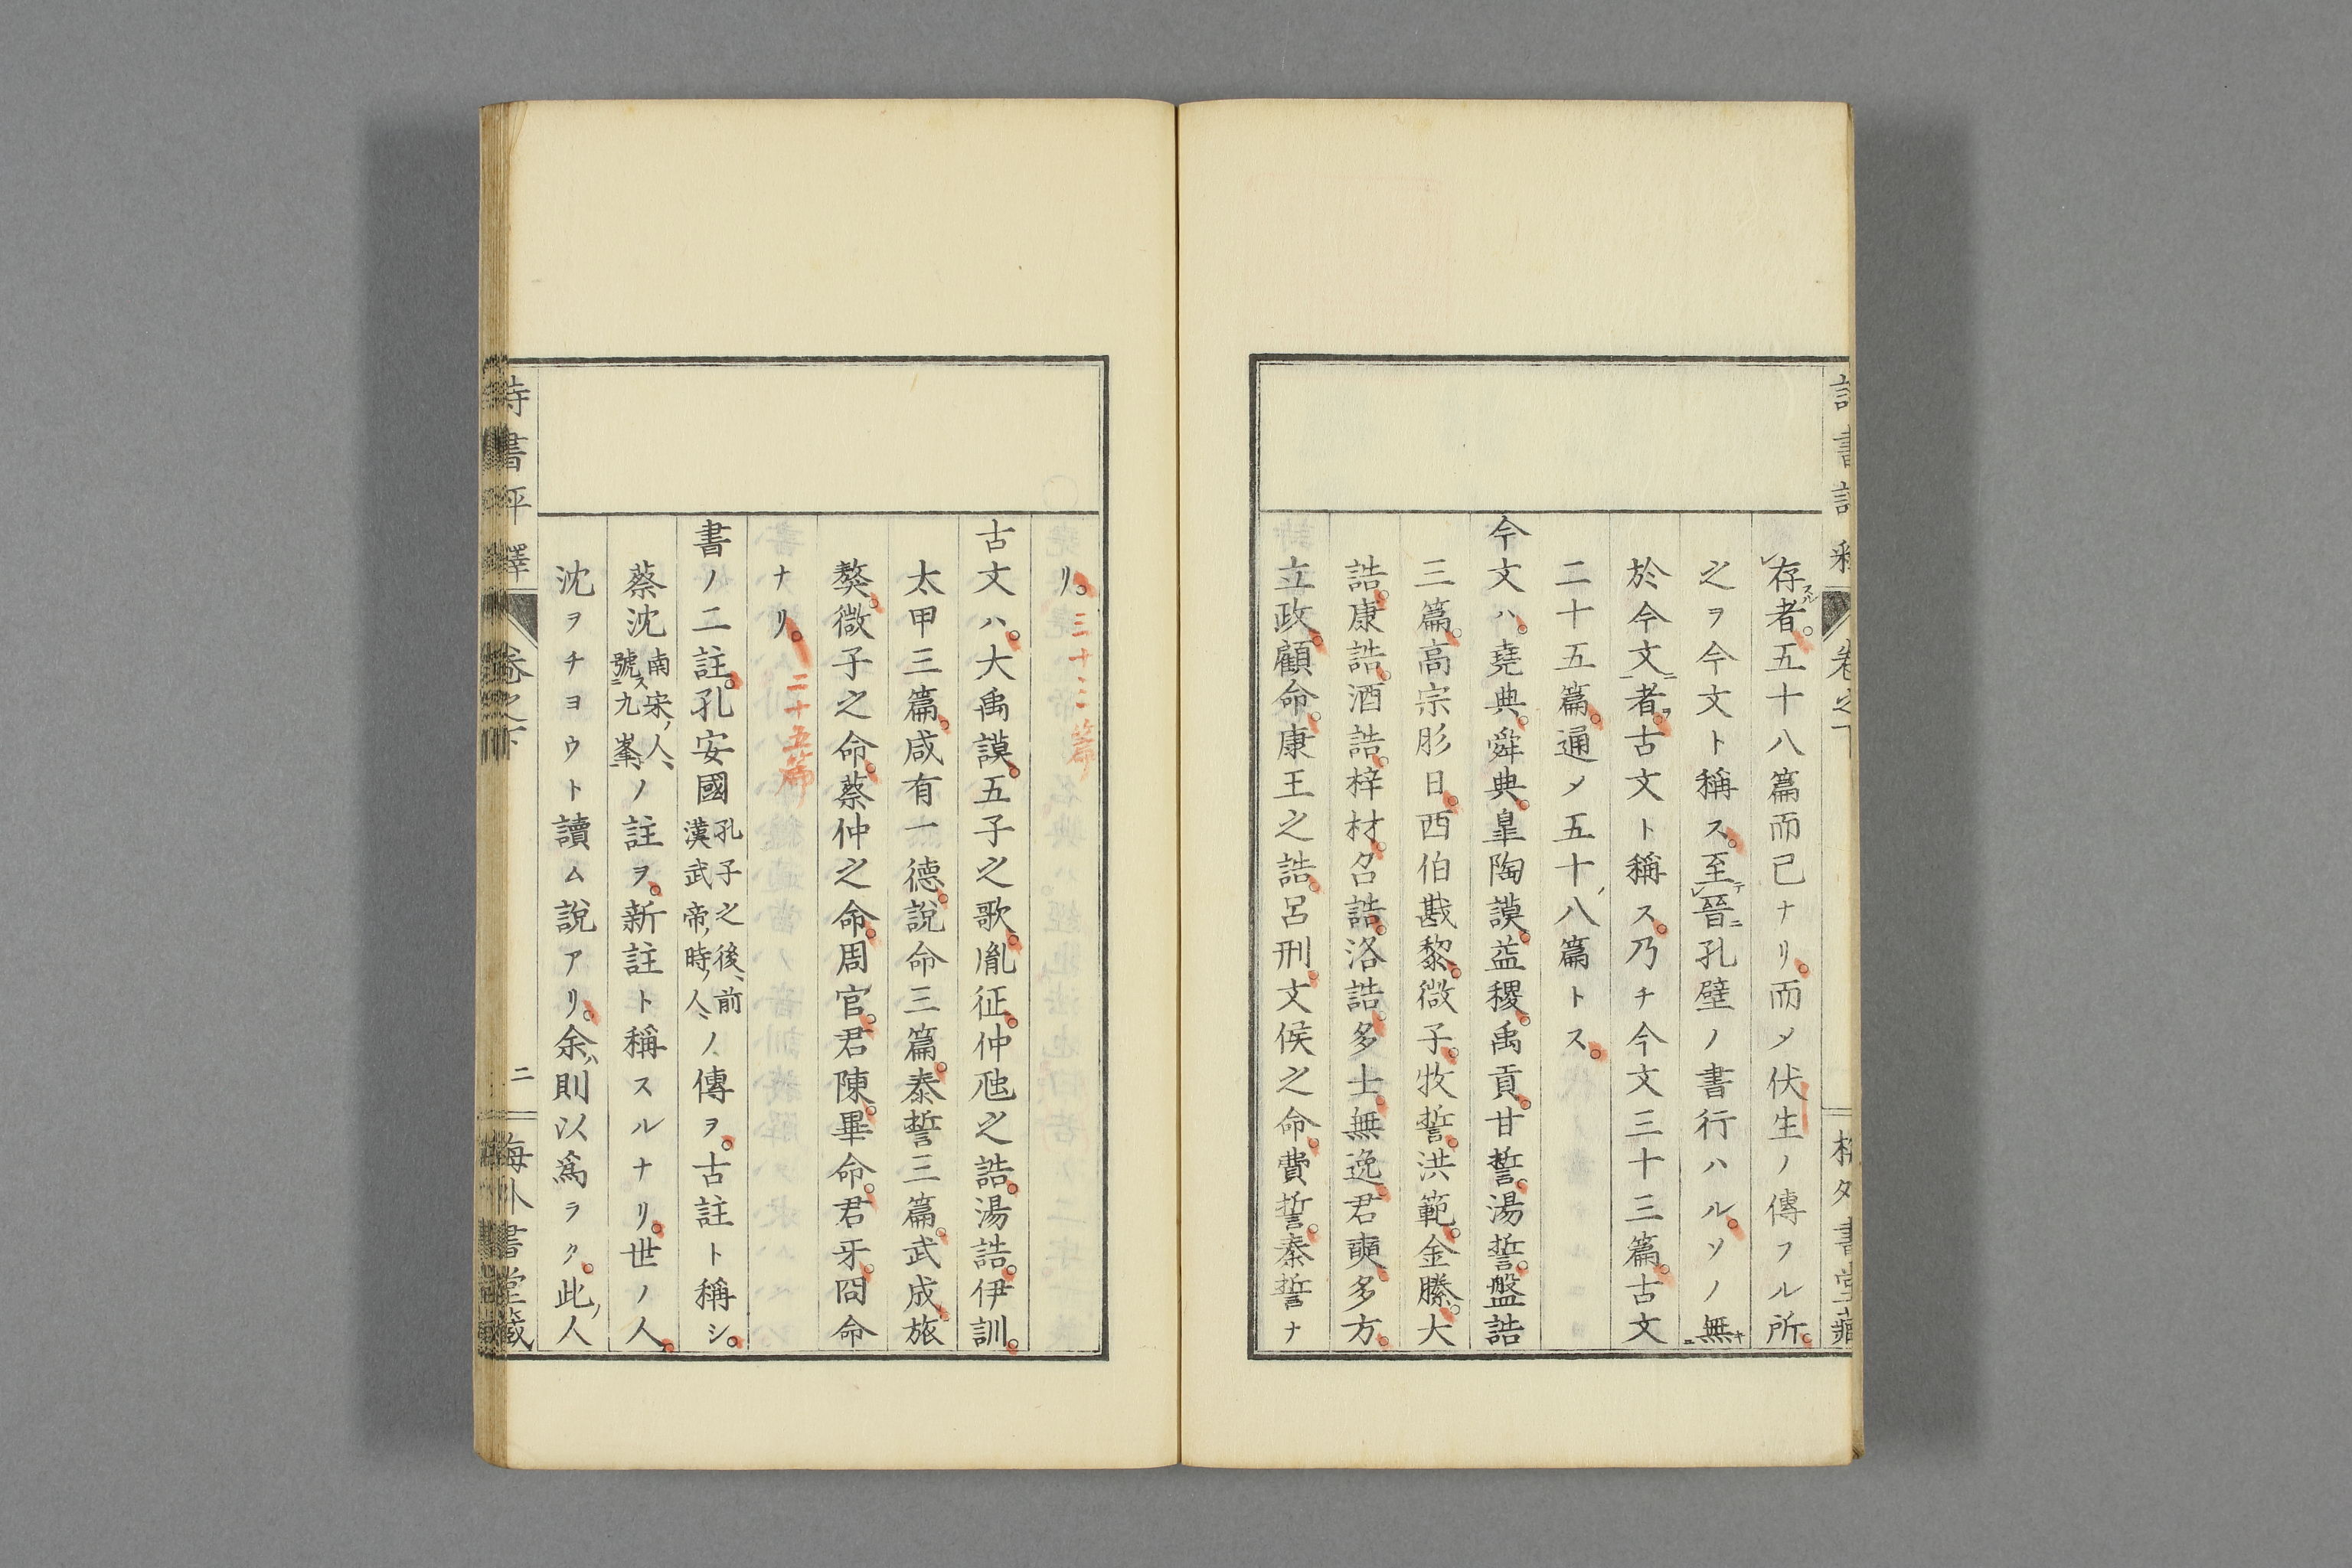 存スル者。五十八篇而已ナリ。而メ伏生ノ傳フル所。
之ヲ今文ト稱ス。至テ晉ニ孔壁ノ書行ハル。ソノ無キ
於今文ニ者ヲ。古文ト稱ス。乃チ今文三十三篇。古文
二十五篇。通メ五十八篇トス。
今文ハ。堯典。舜典。皐陶謨。益稷。禹貢。甘誓。湯誓。盤誥
三篇。高宗肜日。西伯戡黎。微子。牧誓。洪範。金縢。大
誥。康誥。酒誥。梓材。召誥。洛誥。多士。無逸。君奭。多方。
立政。顧命。康王之誥。呂刑。文侯之命。費誓。秦誓ナ
リ。三十三篇
古文ハ。大禹謨。五子之歌。胤征。仲虺之誥。湯誥。伊訓。
太甲三篇。咸有一德。說命三篇。泰誓三篇。武成。旅
獒。微子之命。蔡仲之命。周官。君陳。畢命。君牙。冏命
ナリ。二十五篇
書ノ二註。孔安國孔子之後、前漢武帝ノ時ノ人ノ傳ヲ。古註ト稱シ。
蔡沈南宋ノ人、號ス九峯ノ註ヲ。新註ト稱スルナリ。世ノ人。
沈ヲチヨウト讀ム說アリ。余ハ則以爲ラク。此ノ人
詩書評釋
卷之下
二
梅外書堂藏